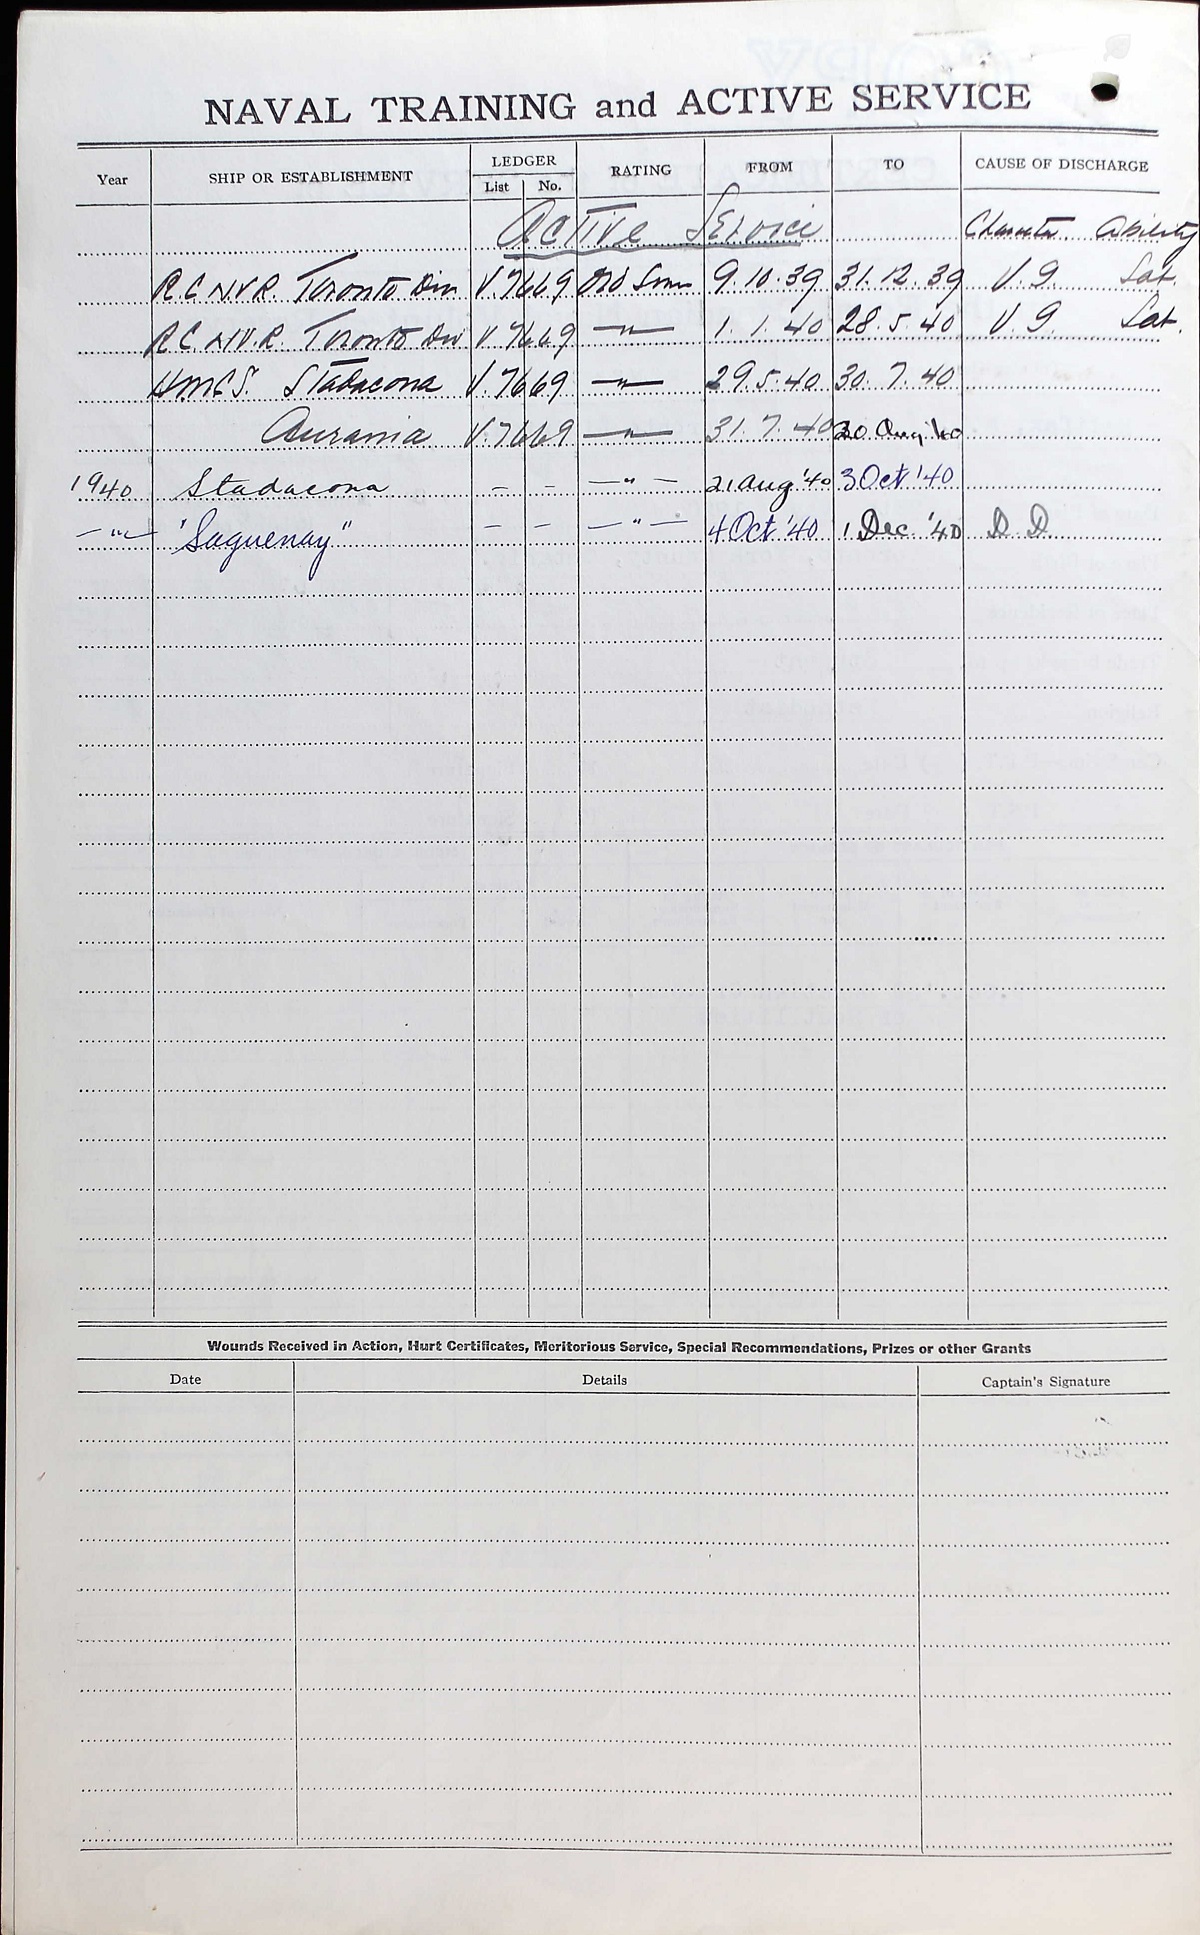 NAVAL TRAINING and ACTIVE SERVICE
Year SHIP OR ESTABLISHMENT LEDGER List No. RATING FROM TO CAUSE OF DISCHARGE
Active Service Character Ability
R.C.N.V.R. Toronto Div V.7669 Ord Smn 9.10.39 31.12.39 V.G. Sat.
R.C.N.V.R. Toronto Div V.7669 —"— 1.1.40 28.5.40 V.G. Sat.
H.M.C.S. Stadacona V.7669 —"— 29.5.40 30.7.40
Aurania V.7669 —"— 31.7.40 20 Aug '40
1940 Stadacona — — —"— 21 Aug '40 3 Oct '40
—"— "Saguenay" — — —"— 4 Oct '40 1 Dec '40 D.D.
Wounds Received in Action, Hurt Certificates, Meritorious Service, Special Recommendations, Prizes or other Grants
Date Details Captain's Signature